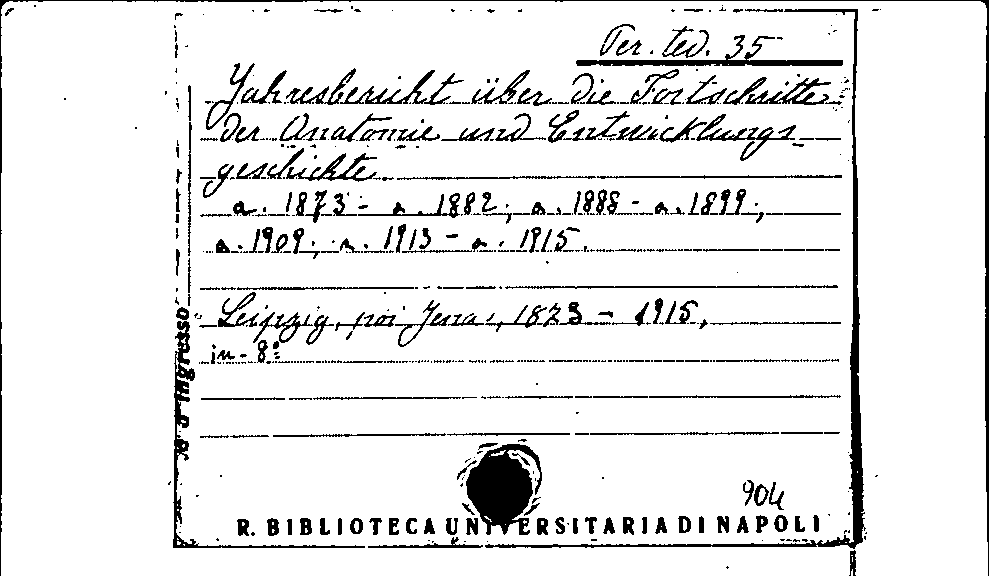 Per. ted. 35
Jahresbericht über die Fortschritte
der Anatomie und Entwicklungs-
geschichte.
a. 1873 - a. 1882; a. 1888 - a. 1899;
a. 1909; a. 1913 - a. 1915.
Leipzig, poi Jena, 1873 - 1915,
in-8°
N° d'ingresso
904
R. BIBLIOTECA UNIVERSITARIA DI NAPOLI